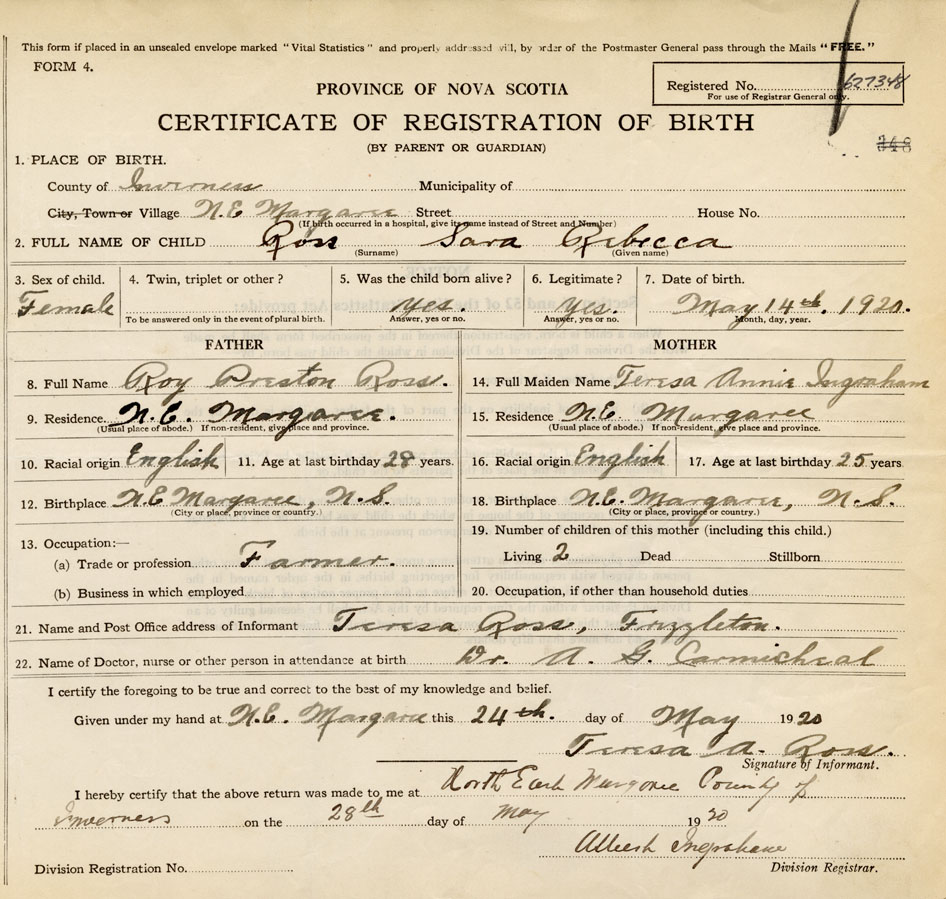 This form if placed in an unsealed envelope marked "Vital Statistics" and properly addressed will, by order of the Postmaster General pass through the Mails "FREE."
FORM 4.
Registered No. 627348
For use of Registrar General only.
PROVINCE OF NOVA SCOTIA
CERTIFICATE OF REGISTRATION OF BIRTH
(BY PARENT OR GUARDIAN)
348
1. PLACE OF BIRTH.
County of Inverness Municipality of
City, Town or Village N.E Margaree Street House No.
(If birth occurred in a hospital, give its name instead of Street and Number)
2. FULL NAME OF CHILD Ross Sara Rebecca
(Surname) (Given name)
3. Sex of child. 4. Twin, triplet or other? 5. Was the child born alive? 6. Legitimate? 7. Date of birth.
Female Yes. Yes. May 14th. 1920.
To be answered only in the event of plural birth. Answer, yes or no. Answer, yes or no. Month, day, year.
FATHER MOTHER
8. Full Name Roy Preston Ross. 14. Full Maiden Name Teresa Annie Ingraham
9. Residence. N.E. Margaree. 15. Residence N.E. Margaree
(Usual place of abode.) If non-resident, give place and province. (Usual place of abode.) If non-resident, give place and province.
10. Racial origin English 11. Age at last birthday 28 years. 16. Racial origin English 17. Age at last birthday 25 years
12. Birthplace N.E Margaree, N.S. 18. Birthplace N.E. Margaree, N.S.
(City or place, province or country.) (City or place, province or country.)
19. Number of children of this mother (including this child.)
13. Occupation:—
Living 2 Dead Stillborn
(a) Trade or profession. Farmer.
(b) Business in which employed 20. Occupation, if other than household duties
21. Name and Post Office address of Informant Teresa Ross, Frizzleton.
22. Name of Doctor, nurse or other person in attendance at birth Dr. A. G. Carmicheal
I certify the foregoing to be true and correct to the best of my knowledge and belief.
Given under my hand at N.E. Margaree this 24th. day of May 1920
Teresa A. Ross.
Signature of Informant.
I hereby certify that the above return was made to me at North East Margaree County of
Inverness on the 28th day of May 1920
Albert Ingraham
Division Registration No. Division Registrar.